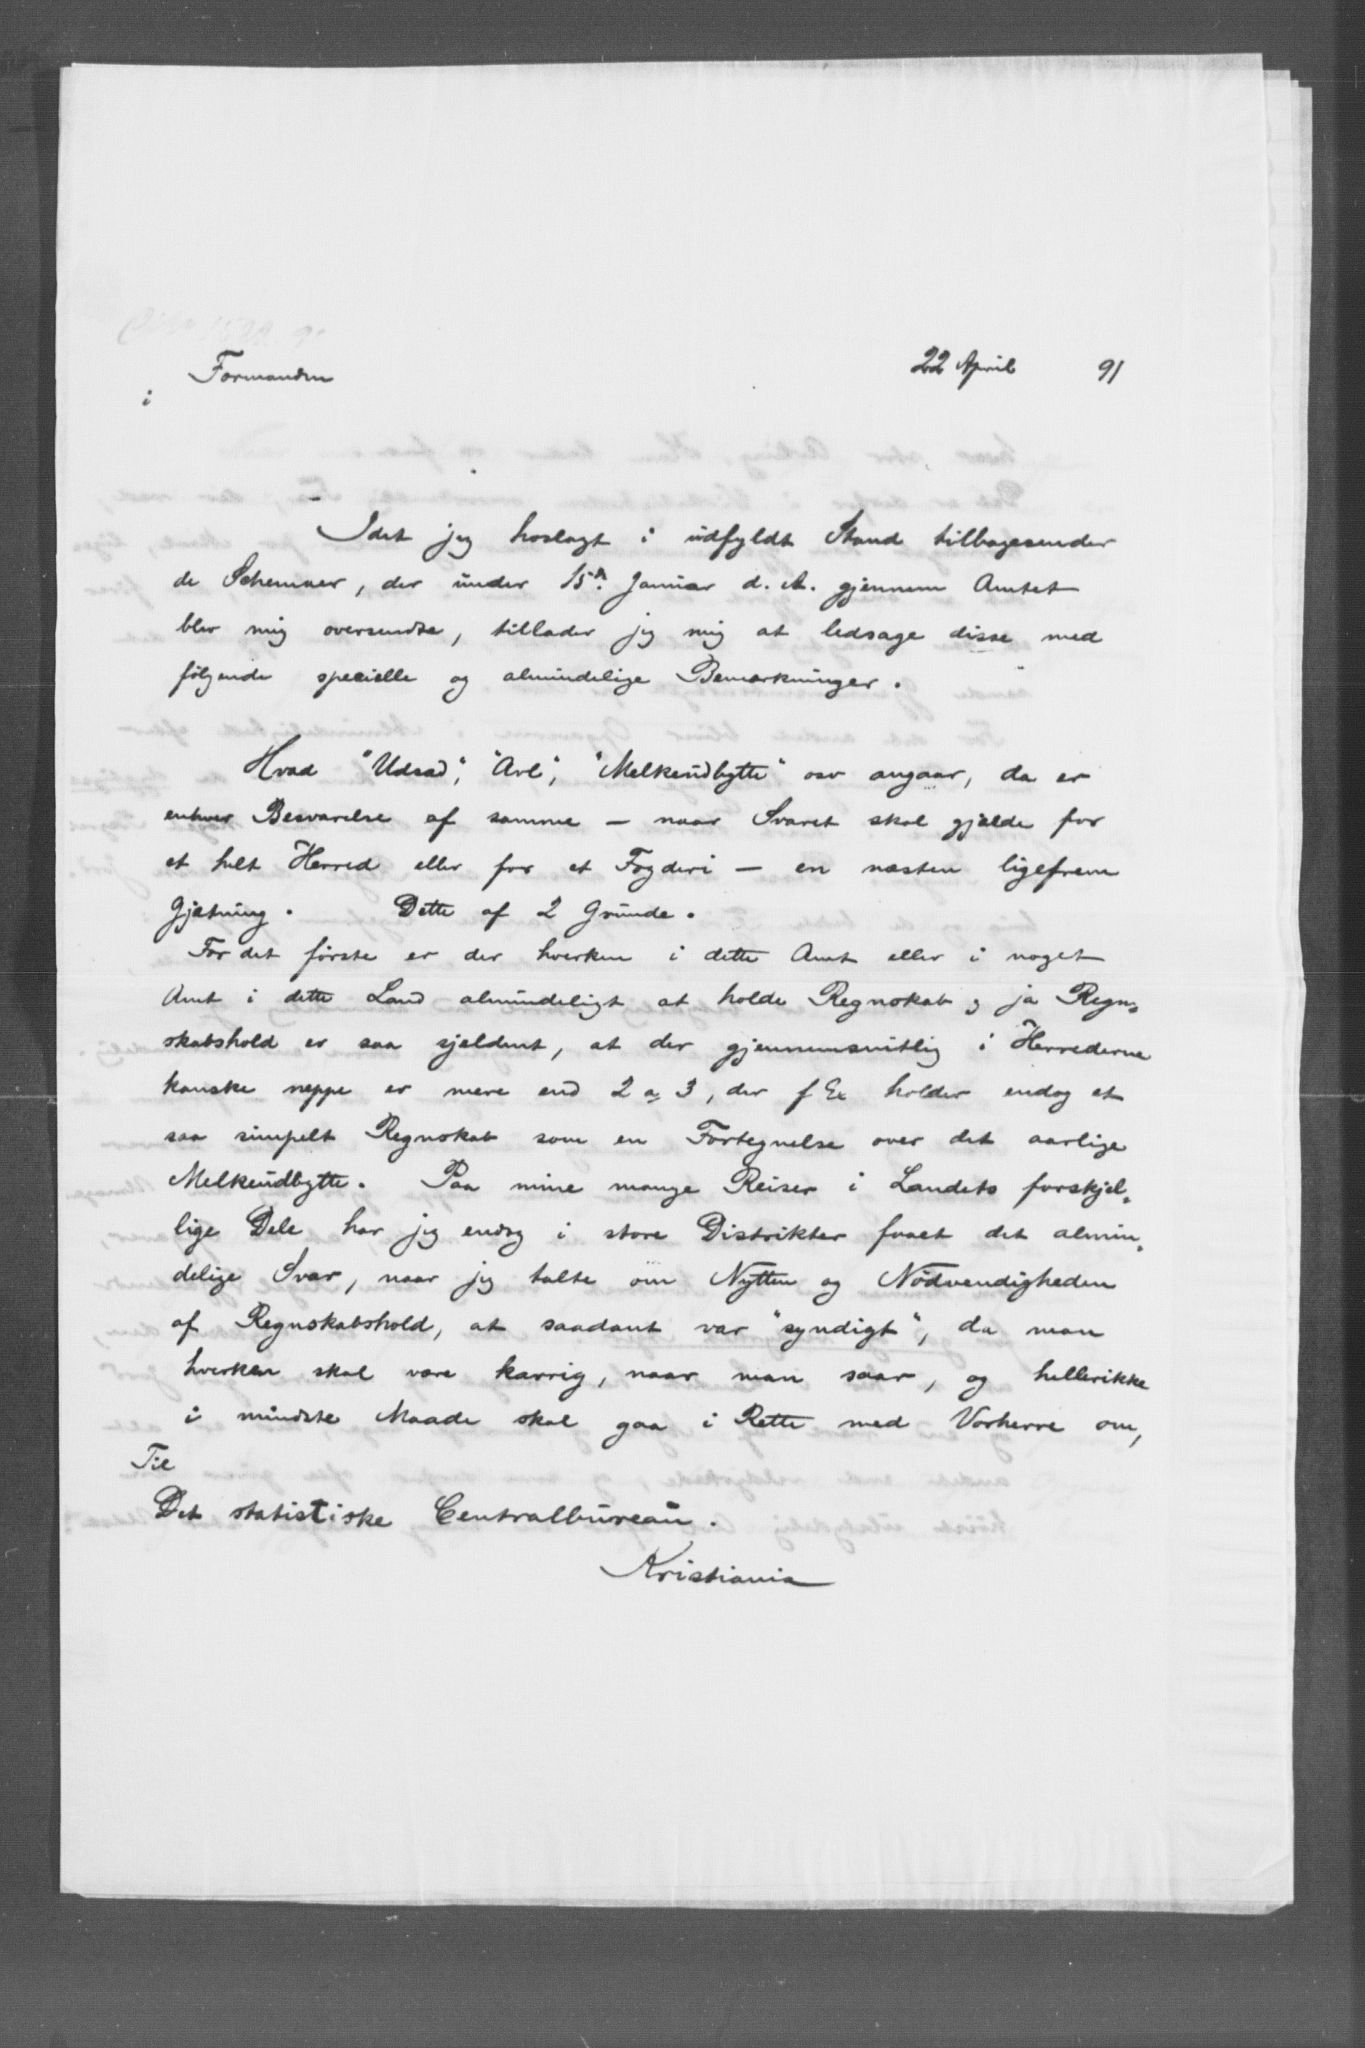 Formanden 22 April 91
i
Idet jeg hoslagt i udfyldt Stand tilbagesender
de Schemaer, der under 15de Januar d. A. gjennem Amtet
blev mig oversendte, tillader jeg mig at ledsage disse med
følgende specielle og almindelige Bemærkninger.
Hvad "Udsæd", "Avl", "Melkeudbytte" osv angaar, da er
enhver Besvarelse af samme — naar Svaret skal gjælde for
et helt Herred eller for et Fogderi — en næsten ligefrem
Gjætning. Dette af 2 Grunde.
For det første er der hverken i dette Amt eller i noget
Amt i dette Land almindeligt at holde Regnskab, ja Regn-
skabshold er saa sjeldent, at der gjennemsnitlig i Herrederne
kanske neppe er mere end 2 a 3, der f Ex holder endog et
saa simpelt Regnskab som en Fortegnelse over det aarlige
Melkeudbytte. Paa mine mange Reiser i Landets forskjel-
lige Dele har jeg endog i store Distrikter faaet det almin-
delige Svar, naar jeg talte om Nytten og Nødvendigheden
af Regnskabshold, at saadant var "syndigt", da man
hverken skal være karrig, naar man saar, og hellerikke
i mindste Maade skal gaa i Rette med Vorherre om,
Til
Det statistiske Centralbureau.
Kristiania